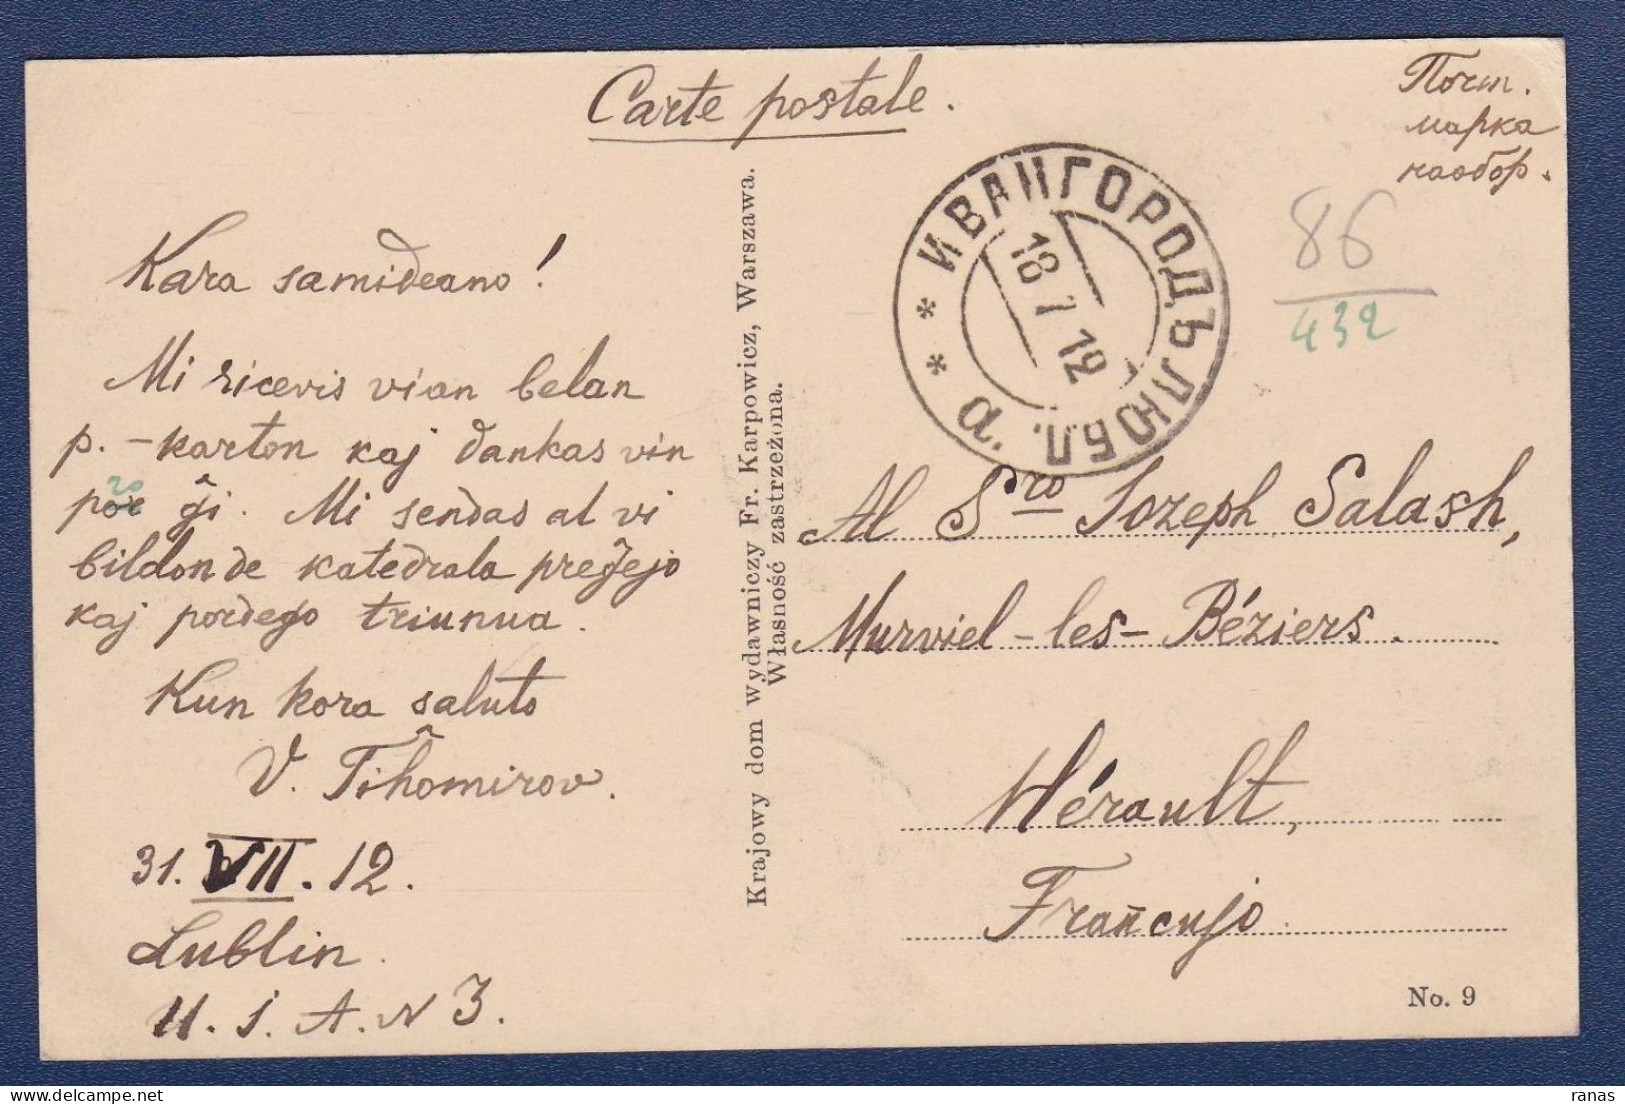 Carte postale.
Почт.
марка
наобор.
ИВАНГОРОДЪ ЛЮБЛ.
18 7 12
86
432
Kara samideano!
Mi ricevis vian belan
p.-karton kaj dankas vin
por ĝi. Mi sendas al vi
bildon de katedrala preĝejo
kaj pordego triunua.
Kun kora saluto
V. Tiĥomirov.
31. VII. 12.
Lublin.
U. S. A. N 3.
Krajowy dom wydawniczy Fr. Karpowicz, Warszawa.
Własność zastrzeżona.
Al Sro Jozeph Salash,
Murviel-les-Béziers.
Hérault,
Francujo
No. 9
ranas